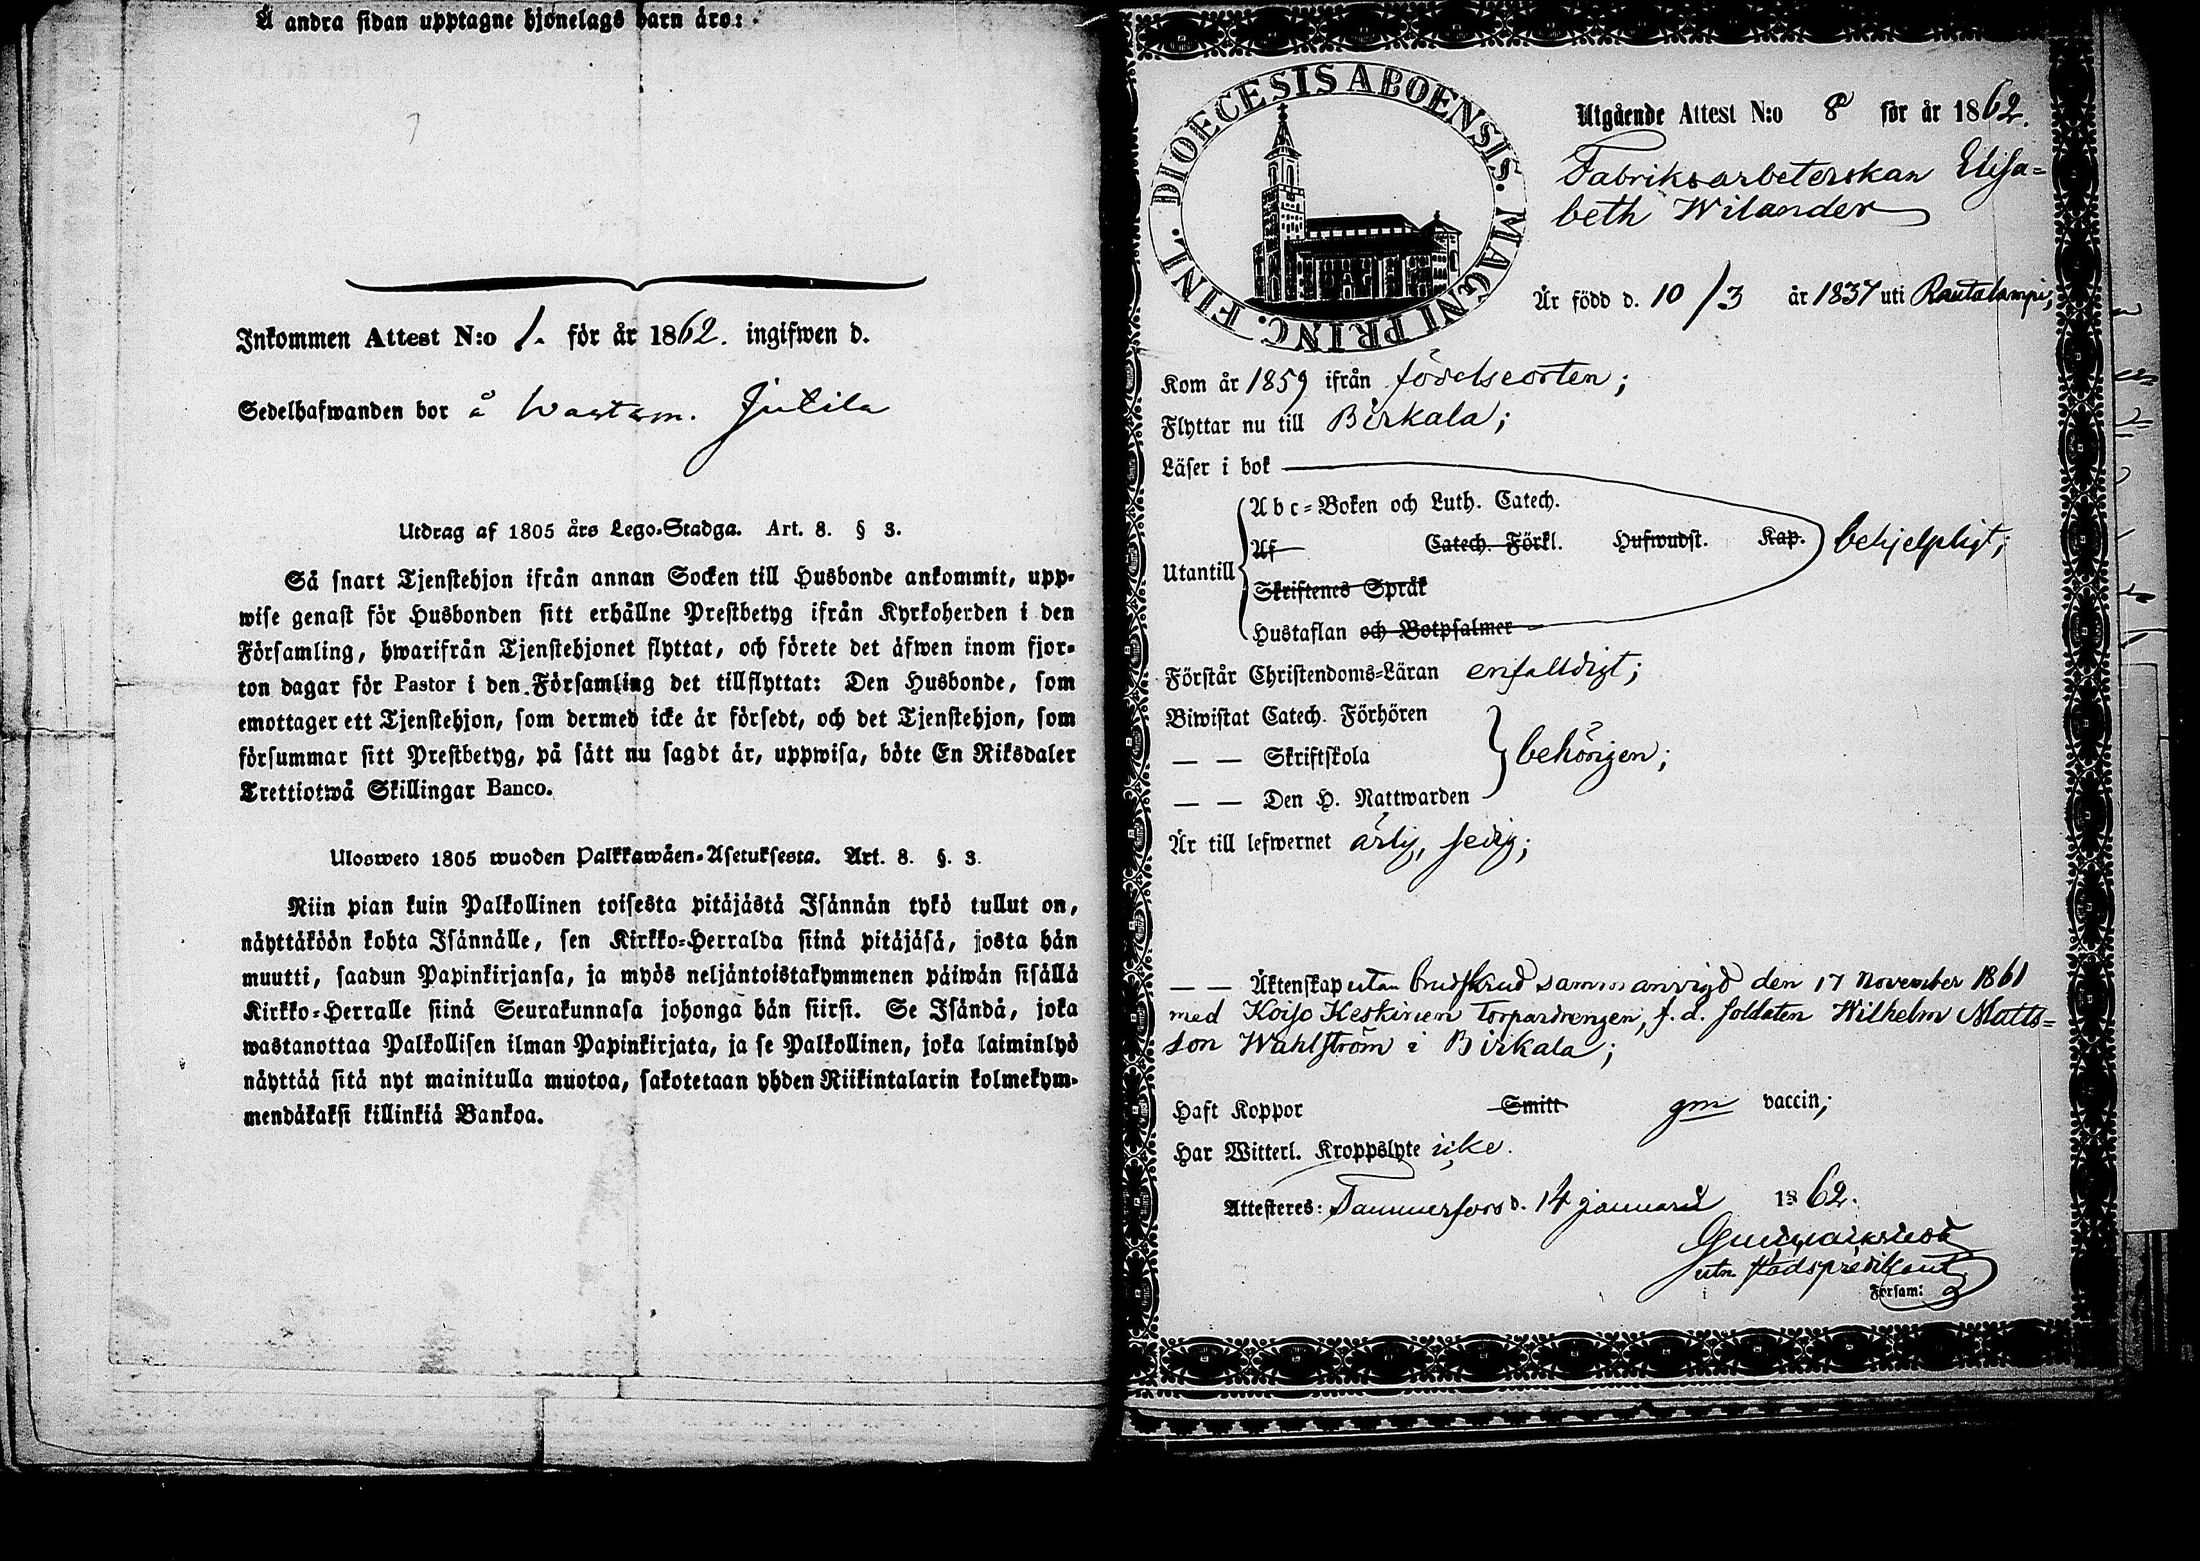 Å andra sidan upptagne hjonelags barn äro:
Inkommen Attest N:o 1. för år 1862. ingifwen d.
Sedelhafwanden bor å Waatsm. Jutila
Utdrag af 1805 års Lego-Stadga. Art. 8. § 3.
Så snart Tjenstehjon ifrån annan Socken till Husbonde ankommit, upp-
wise genast för Husbonden sitt erhållne Prestbetyg ifrån Kyrkoherden i den
Församling, hwarifrån Tjenstehjonet flyttat, och förete det äfwen inom fjor-
ton dagar för Pastor i den Församling det tillflyttat: Den Husbonde, som
emottager ett Tjenstehjon, som dermed icke är försedt, och det Tjenstehjon, som
försummar sitt Prestbetyg, på sätt nu sagdt är, uppwisa, böte En Riksdaler
Trettiotwå Skillingar Banco.
Ulosweto 1805 wuoden Palkkawäen-Asetuksesta. Art. 8. §. 3.
Niin pian kuin Palkollinen toisesta pitäjästä Isännän tykö tullut on,
näyttäköön kohta Isännälle, sen Kirkko-Herralda siinä pitäjäsä, josta hän
muutti, saadun Papinkirjansa, ja myös neljäntoistakymmenen päiwän sisällä
Kirkko-Herralle siinä Seurakunnasa johonga hän siirsi. Se Isändä, joka
wastanottaa Palkollisen ilman Papinkirjata, ja se Palkollinen, joka laiminlyö
näyttää sitä nyt mainitulla muotoa, sakotetaan yhden Riikintalarin kolmekym-
mendäkaksi killinkiä Bankoa.
DIOECESIS ABOENSIS. MAGNI PRINC. FINL.
Utgående Attest N:o 8 för år 1862.
Fabriksarbeterskan Elisa=
beth Wilander
Är född d. 10/3 år 1837 uti Rautalampi;
Kom år 1859 ifrån födelseorten;
Flyttar nu till Birkala;
Läser i bok
Abc-Boken och Luth. Catech.
Utantill Af Catech. Förkl. Hufwudst. Kap. behjelpligt;
Skriftenes Språk
Hustaflan och Botpsalmer
Förstår Christendoms-Läran enfalldigt;
Biwistat Catech. Förhören
— — Skriftskola behörigen;
— — Den H. Nattwarden
Är till lefwernet ärlig, sedig;
— — Äktenskap utan brudskrud sammanvigd den 17 November 1861
med Koijo Keskinen Torpardrengen, f. d. soldaten Wilhelm Matts=
son Wahlström i Birkala;
Haft Koppor Smitt gm vaccin;
Har Witterl. Kroppslyte icke.
Attesteres: Tammerfors d. 14 januari 1862.
utn. stadspredikant
i Försam: